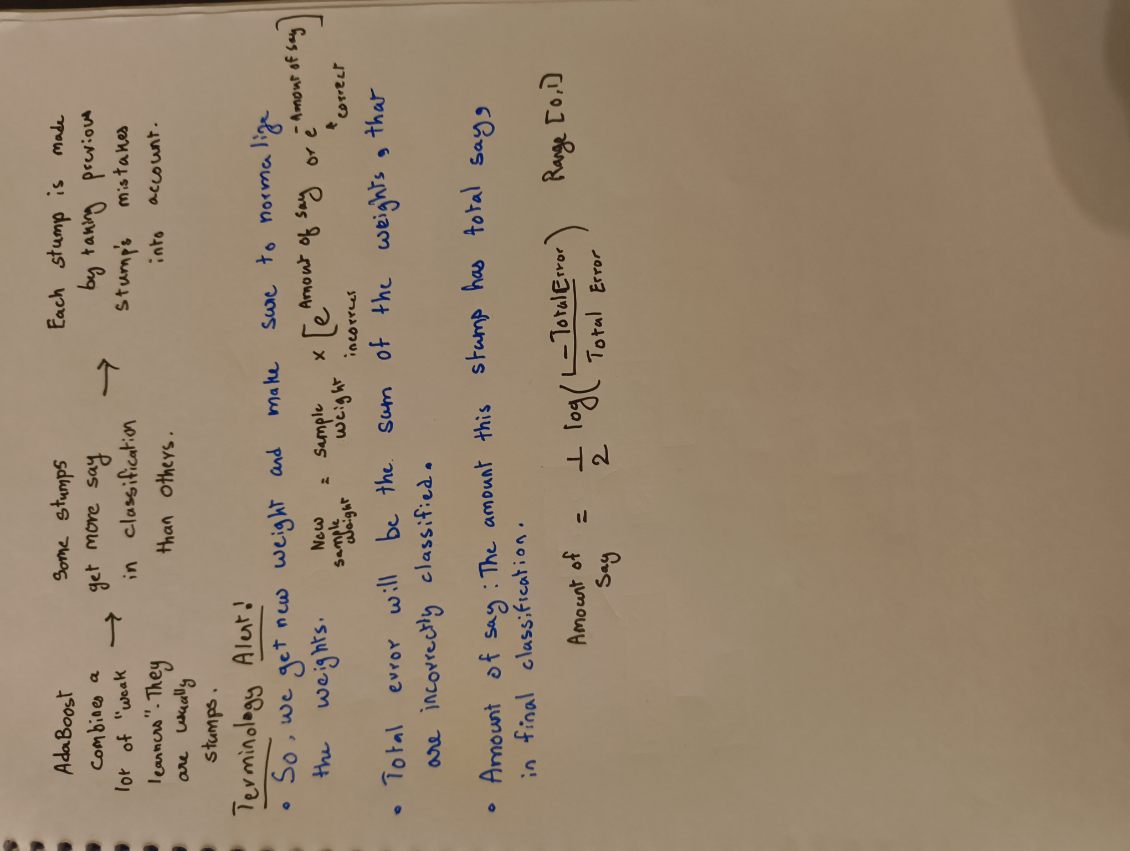 AdaBoost
combines a
lot of "weak
learners". They
are usually
stumps.
→
Some stumps
get more say
in classification
than others.
→
Each stump is made
by taking previous
stump's mistakes
into account.
Terminology Alert!
• So, we get new weight and make sure to normalize
the weights.
New sample weight = sample weight × [e^Amout of say or e^-Amout of say]
incorrect correct
• Total error will be the sum of the weights, that
are incorrectly classified.
• Amount of say : The amount this stamp has total says
in final classification.
Amount of Say = 1/2 log(1-Total Error / Total Error) Range [0,1]